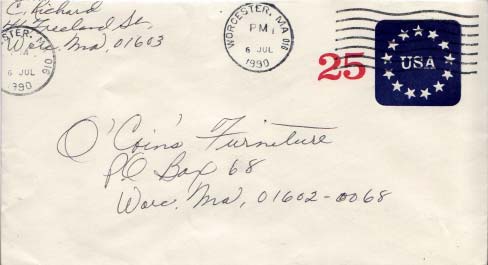 C. Richard
Freeland St.
Worc. Ma, 01603
STER, MA 016
6 JUL
1990
WORCESTER, MA 016
PM
6 JUL
1990
25
USA
O'Coin's Furniture
PO Box 68
Worc. Ma, 01602-0068